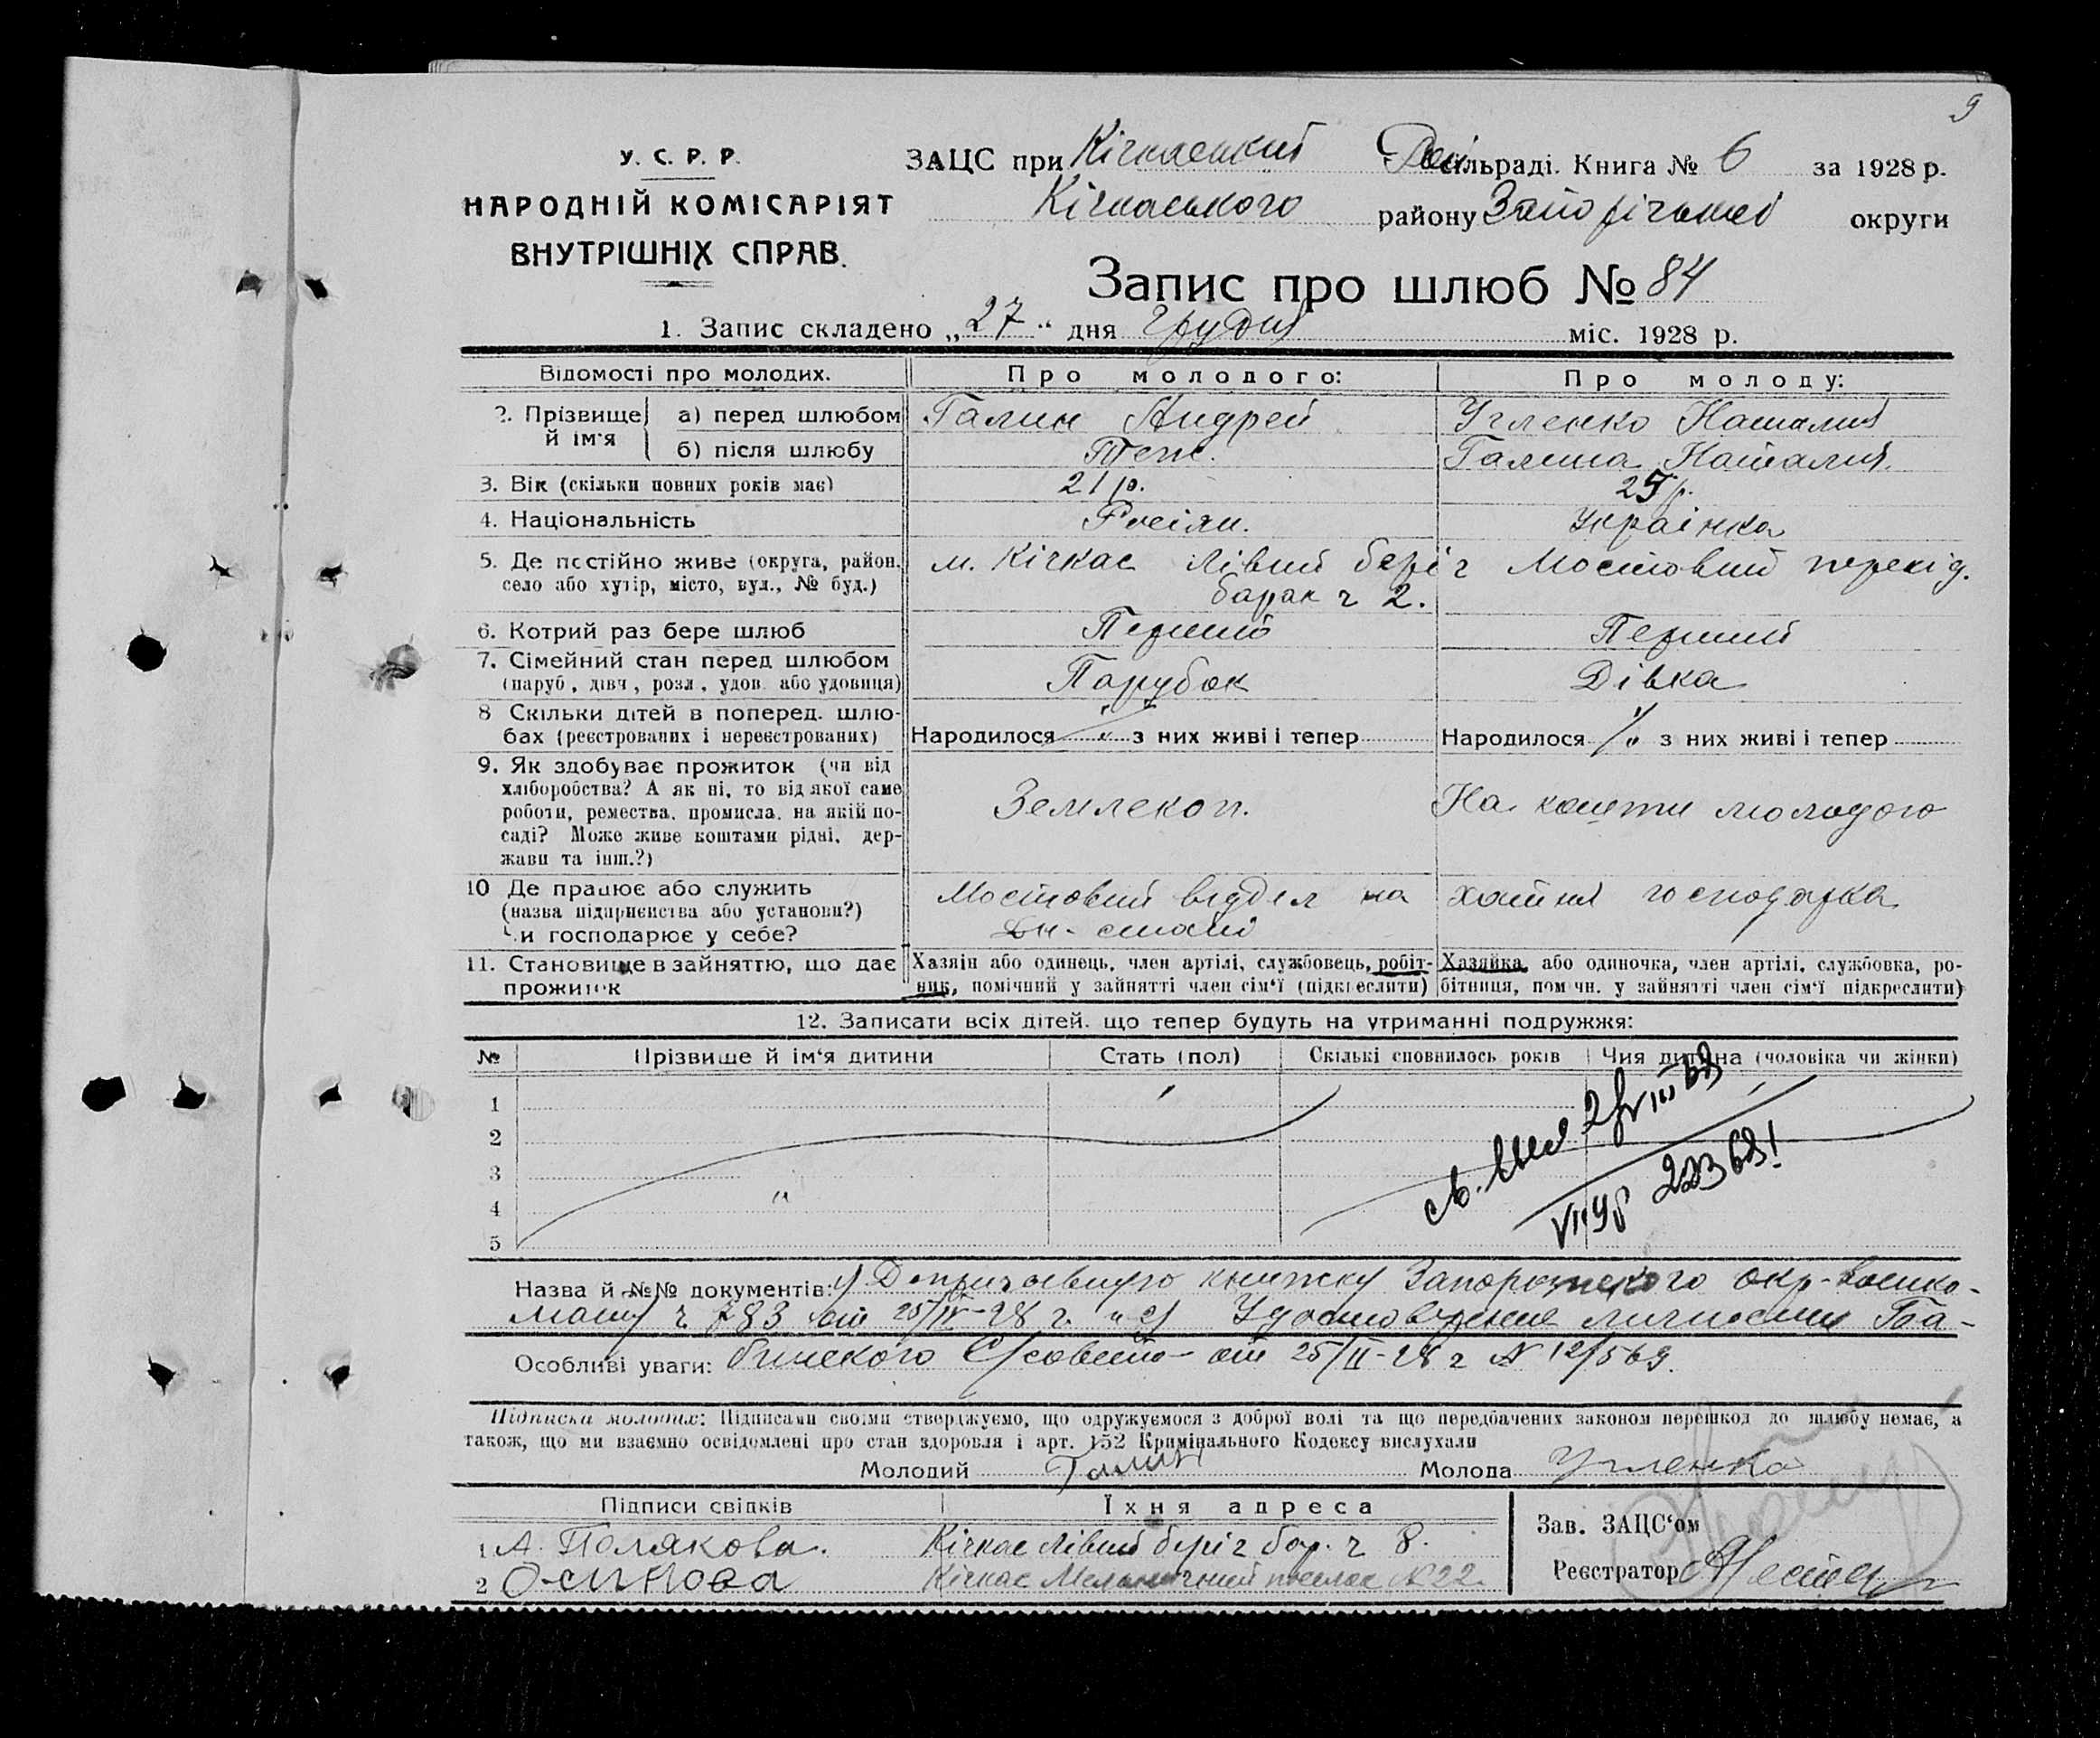 9
У. С. Р. Р.
НАРОДНІЙ КОМІСАРІЯТ
ВНУТРІШНІХ СПРАВ.
ЗАЦС при Кічкаський сільраді. Книга № 6 за 1928 р.
Кічкаського району Запорізької округи
Запис про шлюб № 84
1. Запис складено „27“ дня Грудня міс. 1928 р.
Відомості про молодих. Про молодого: Про молоду:
2. Прізвище й ім'я а) перед шлюбом Галин Андрей Угленко Наталия
б) після шлюбу Теж. Галина Наталия.
3. Вік (скільки повних років має) 21 р. 25 р.
4. Національність Росіян. Українка
5. Де постійно живе (округа, район, м. Кічкас Лівий беріг Мостовий перехід.
село або хутір, місто, вул., № буд.) барак ч 2.
6. Котрий раз бере шлюб Перший Перший
7. Сімейний стан перед шлюбом Парубок Дівка
(паруб., дівч., розл., удов. або удовиця)
8 Скільки дітей в поперед. шлю-
бах (реєстрованих і нереєстрованих) Народилося " з них живі і тепер Народилося " з них живі і тепер
9. Як здобуває прожиток (чи від
хліборобства? А як ні, то від якої саме
роботи, ремества, промисла, на якій по- Землекоп. На кошти молодого
саді? Може живе коштами рідні, дер-
жави та інш.?)
10 Де працює або служить Мостовий відділ на хатня господарка
(назва підприємства або установи?)
Чи господарює у себе?
11. Становище в зайняттю, що дає прожиток
Хазяїн або одинець, член артілі, службовець, робіт-
ник, помічний у зайнятті член сім'ї (підкреслити)
Хазяйка або одиночка, член артілі, службовка, ро-
бітниця, помічн. у зайнятті член сім'ї підкреслити)
12. Записати всіх дітей, що тепер будуть на утриманні подружжя:
№ Прізвище й ім'я дитини Стать (пол) Скількі сповнилось років Чия дитина (чоловіка чи жінки)
1
2
3
4
5
Назва й №№ документів: 1) книжку Запорожского окр-военко-
мату ч 783 от 25/IV-28 г. и 2) Удостоверение личности Ба-
Особливі уваги: бинского С/совета от 25/II-28 г № 12/569.
Підписи молодих: Підписами своїми стверджуємо, що одружуємося з доброї волі та що передбачених законом перешкод до шлюбу немає, а
також, що ми взаємно освідомлені про стан здоровля і арт. 152 Кримінального Кодексу вислухали
Молодий Галин Молода Угленко
Підписи свідків Їхня адреса
1 А. Полякова. Кічкас Лівий беріг бар. ч 8.
2 Осипова Кічкас № 22.
Зав. ЗАЦС'ом
Реєстратор